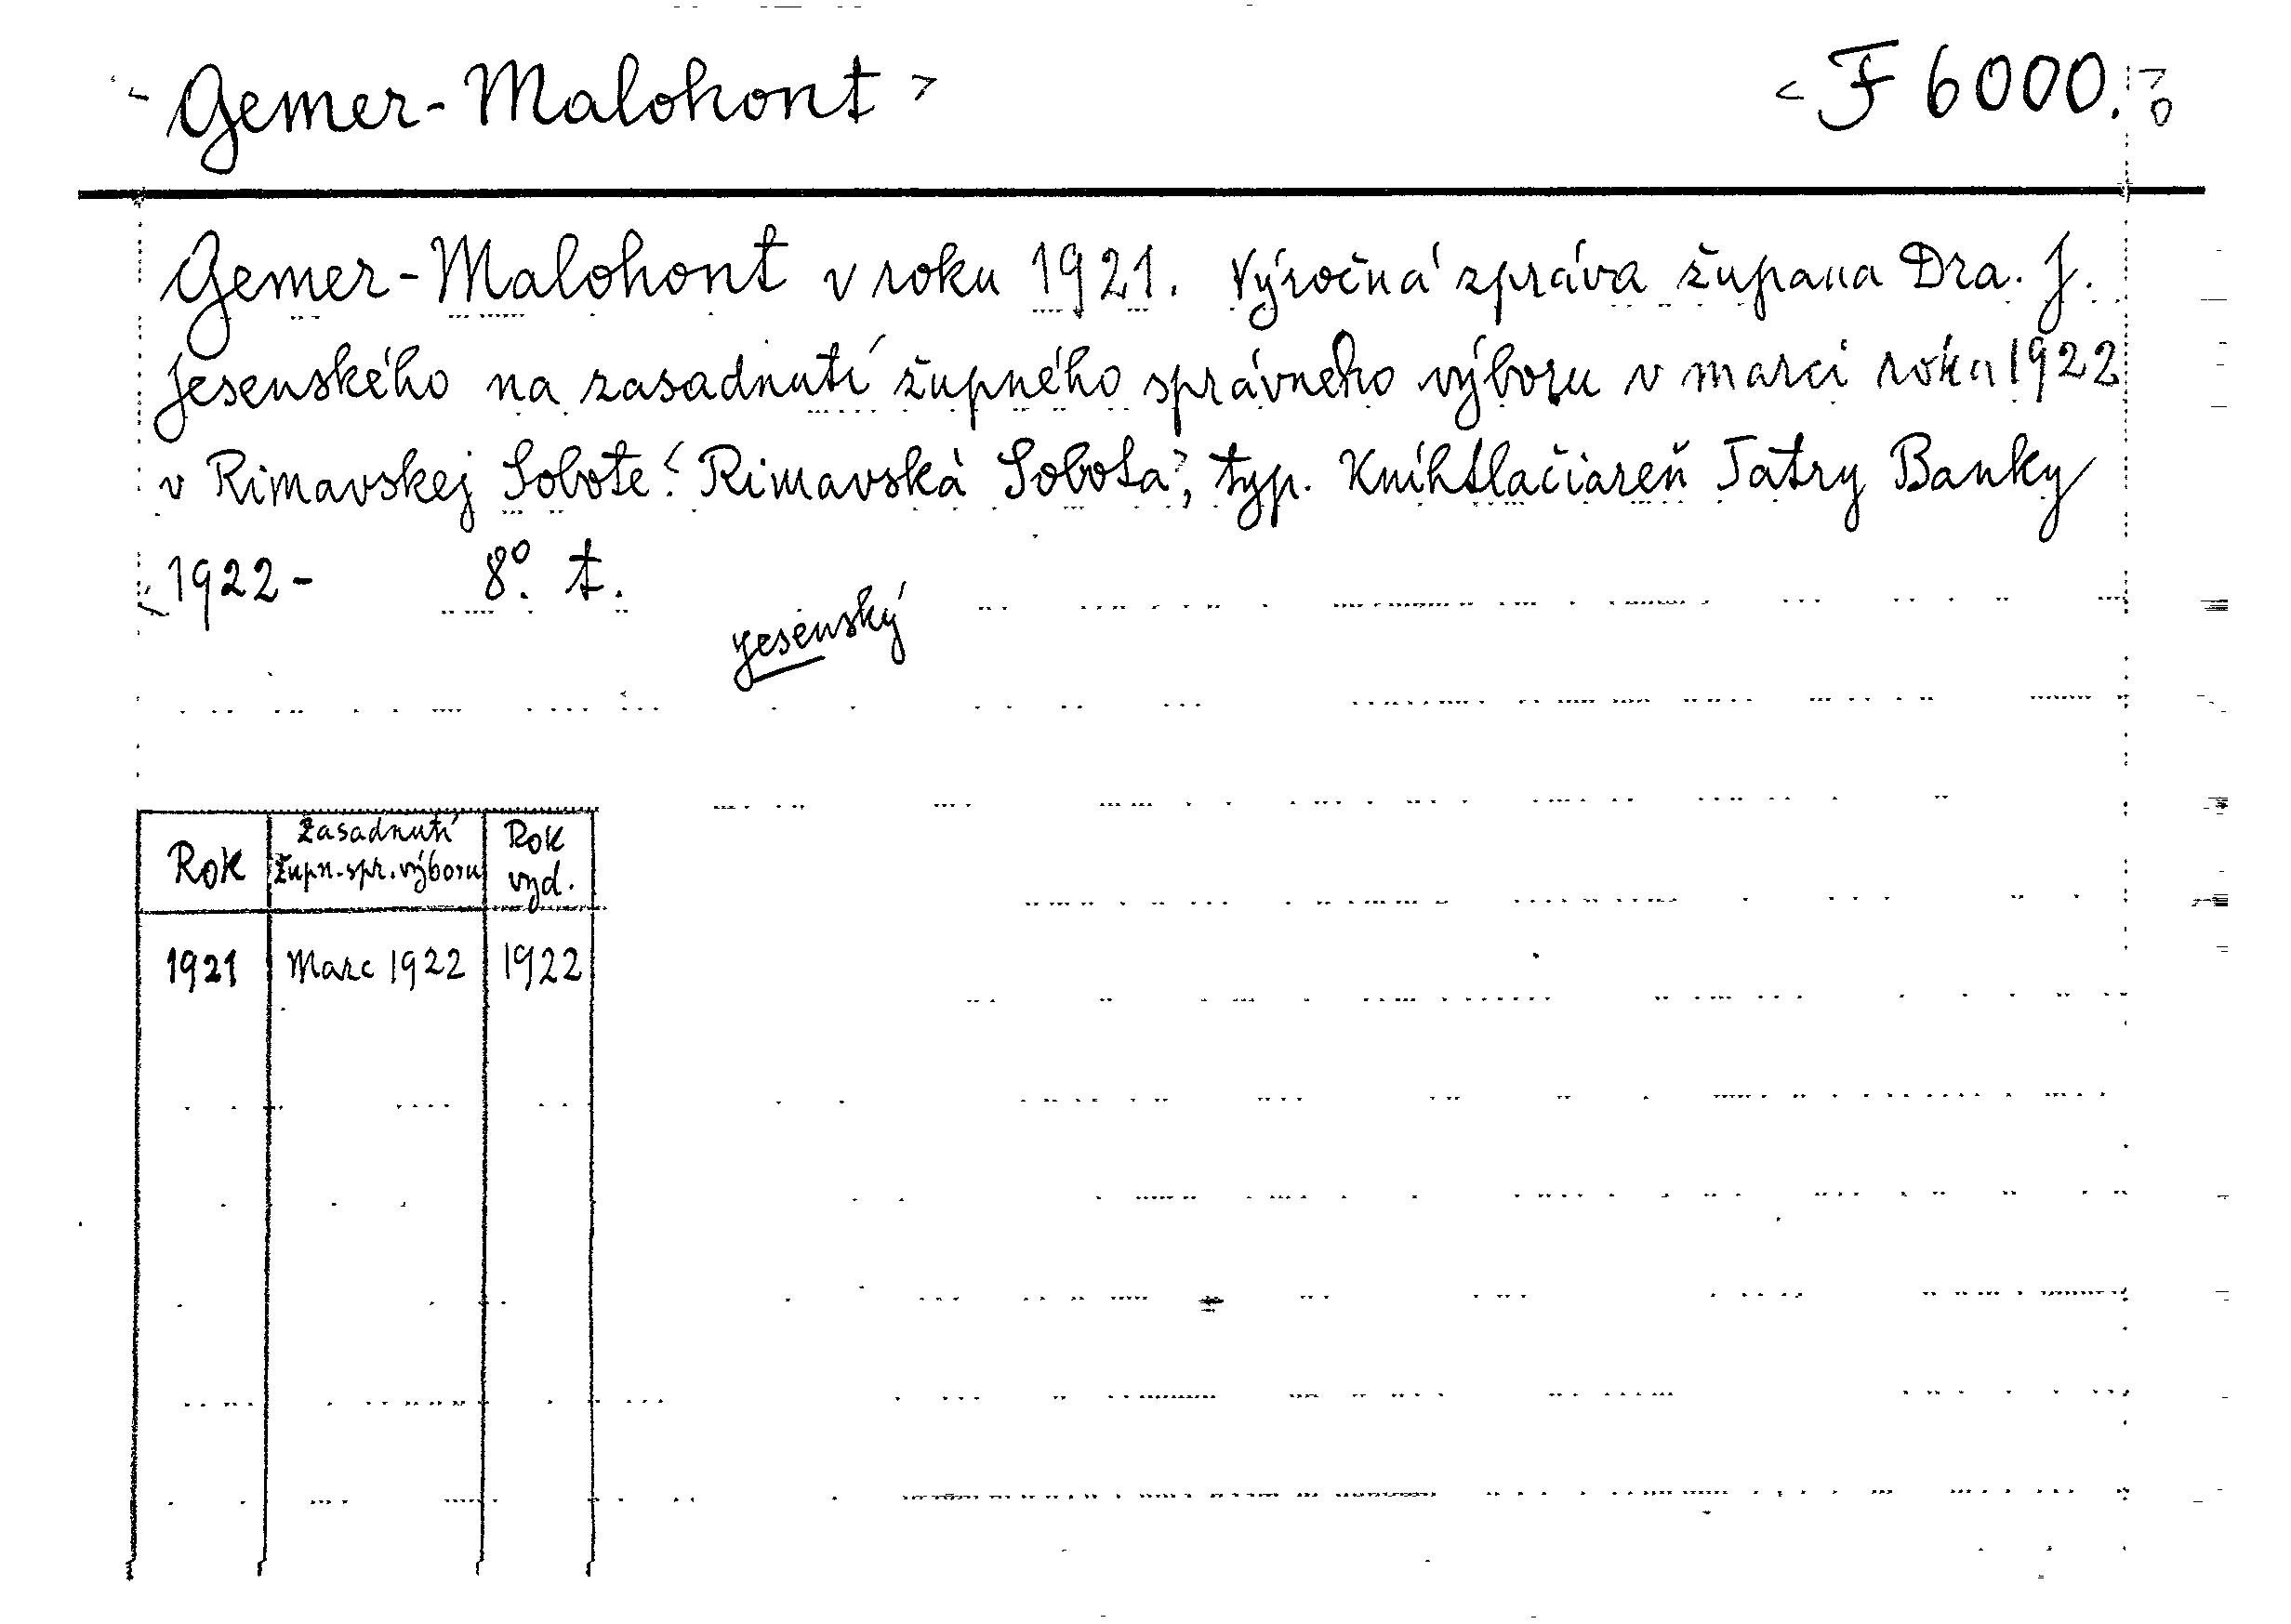 <Gemer-Malohont>
<F 6000.>
Gemer-Malohont v roku 1921. Výročná zpráva župana Dra. J.
Jesenského na zasadnutí župného správneho výboru v marci roka 1922
v Rimavskej Sobote. <Rimavská Sobota>, typ. Kníhtlačiareň Tatry Banky
<1922- 8°. t.
Jesenský
Rok
Zasadnutí
župn.-spr. výboru
Rok
vyd.
1921 Marc 1922 1922